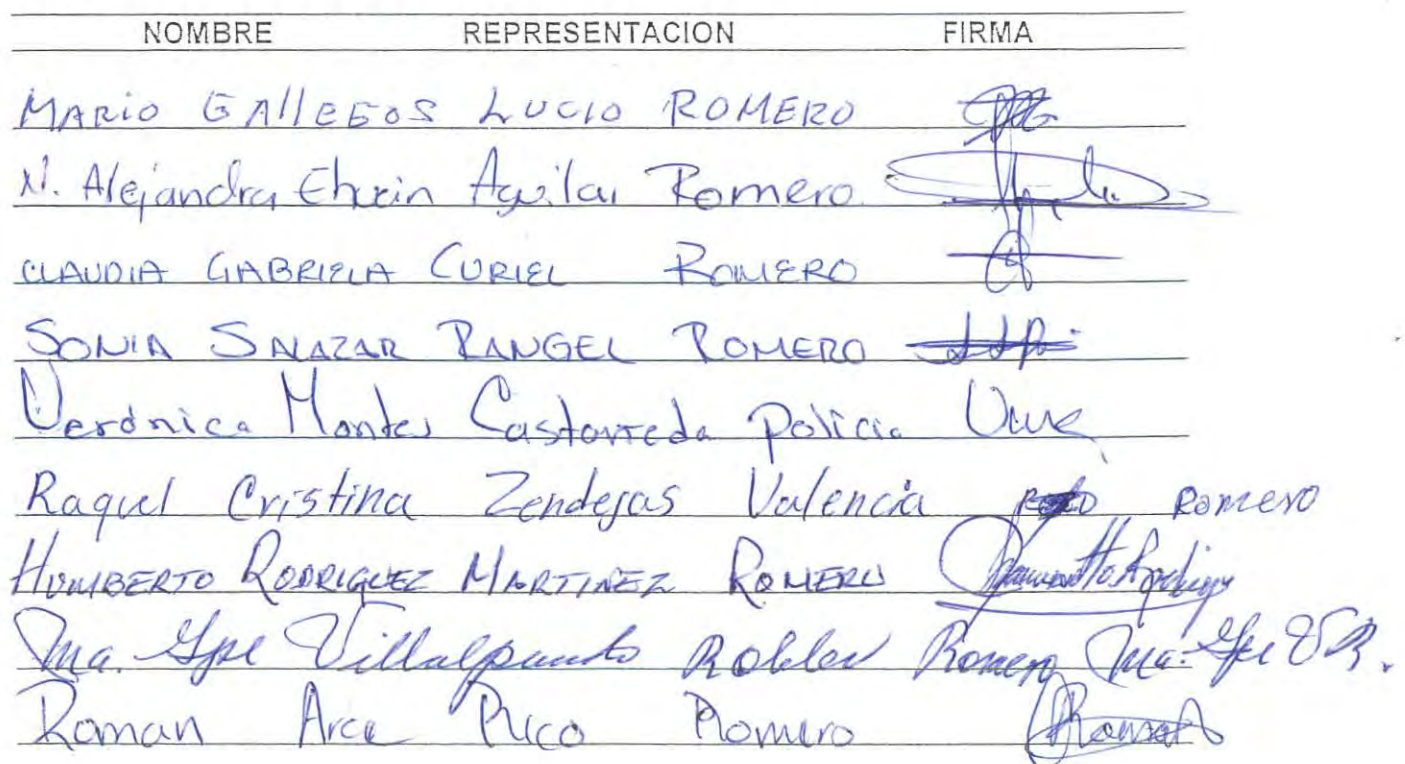 NOMBRE REPRESENTACION FIRMA
MARIO GALLEGOS LUCIO ROMERO
N. Alejandra Aguilar Romero
CLAUDIA GABRIELA CURIEL ROMERO
SONIA SALAZAR RANGEL ROMERO
Verónica Montes Castorreda Policia
Raquel Cristina Zendejas Valencia Romero
HUMBERTO RODRIGUEZ MARTINEZ ROMERO
Ma. Gpe Villalpando Robles Romero Ma. Gpe V R.
Roman Arce Rico Romero